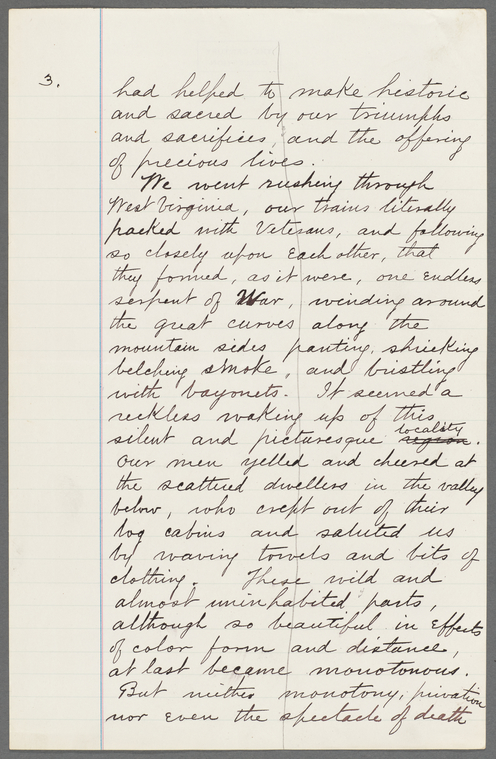 3.
had helped to make historic
and sacred by our triumphs
and sacrifices, and the offering
of precious lives.
We went rushing through
West Virginia, our trains literally
packed with Veterans, and following
so closely upon each other, that
they formed, as it were, one endless
serpent of War, winding around
the great curves along the
mountain sides panting, shrieking
belching smoke, and bristling
with bayonets. It seemed a
reckless waking up of this
locality
silent and picturesque region.
Our men yelled and cheered at
the scattered dwellers in the valley
below, who crept out of their
log cabins and saluted us
by waving towels and bits of
clothing. These wild and
almost uninhabited parts,
although so beautiful in effects
of color form and distance,
at last became monotonous.
But neither monotony, privation
nor even the spectacle of death